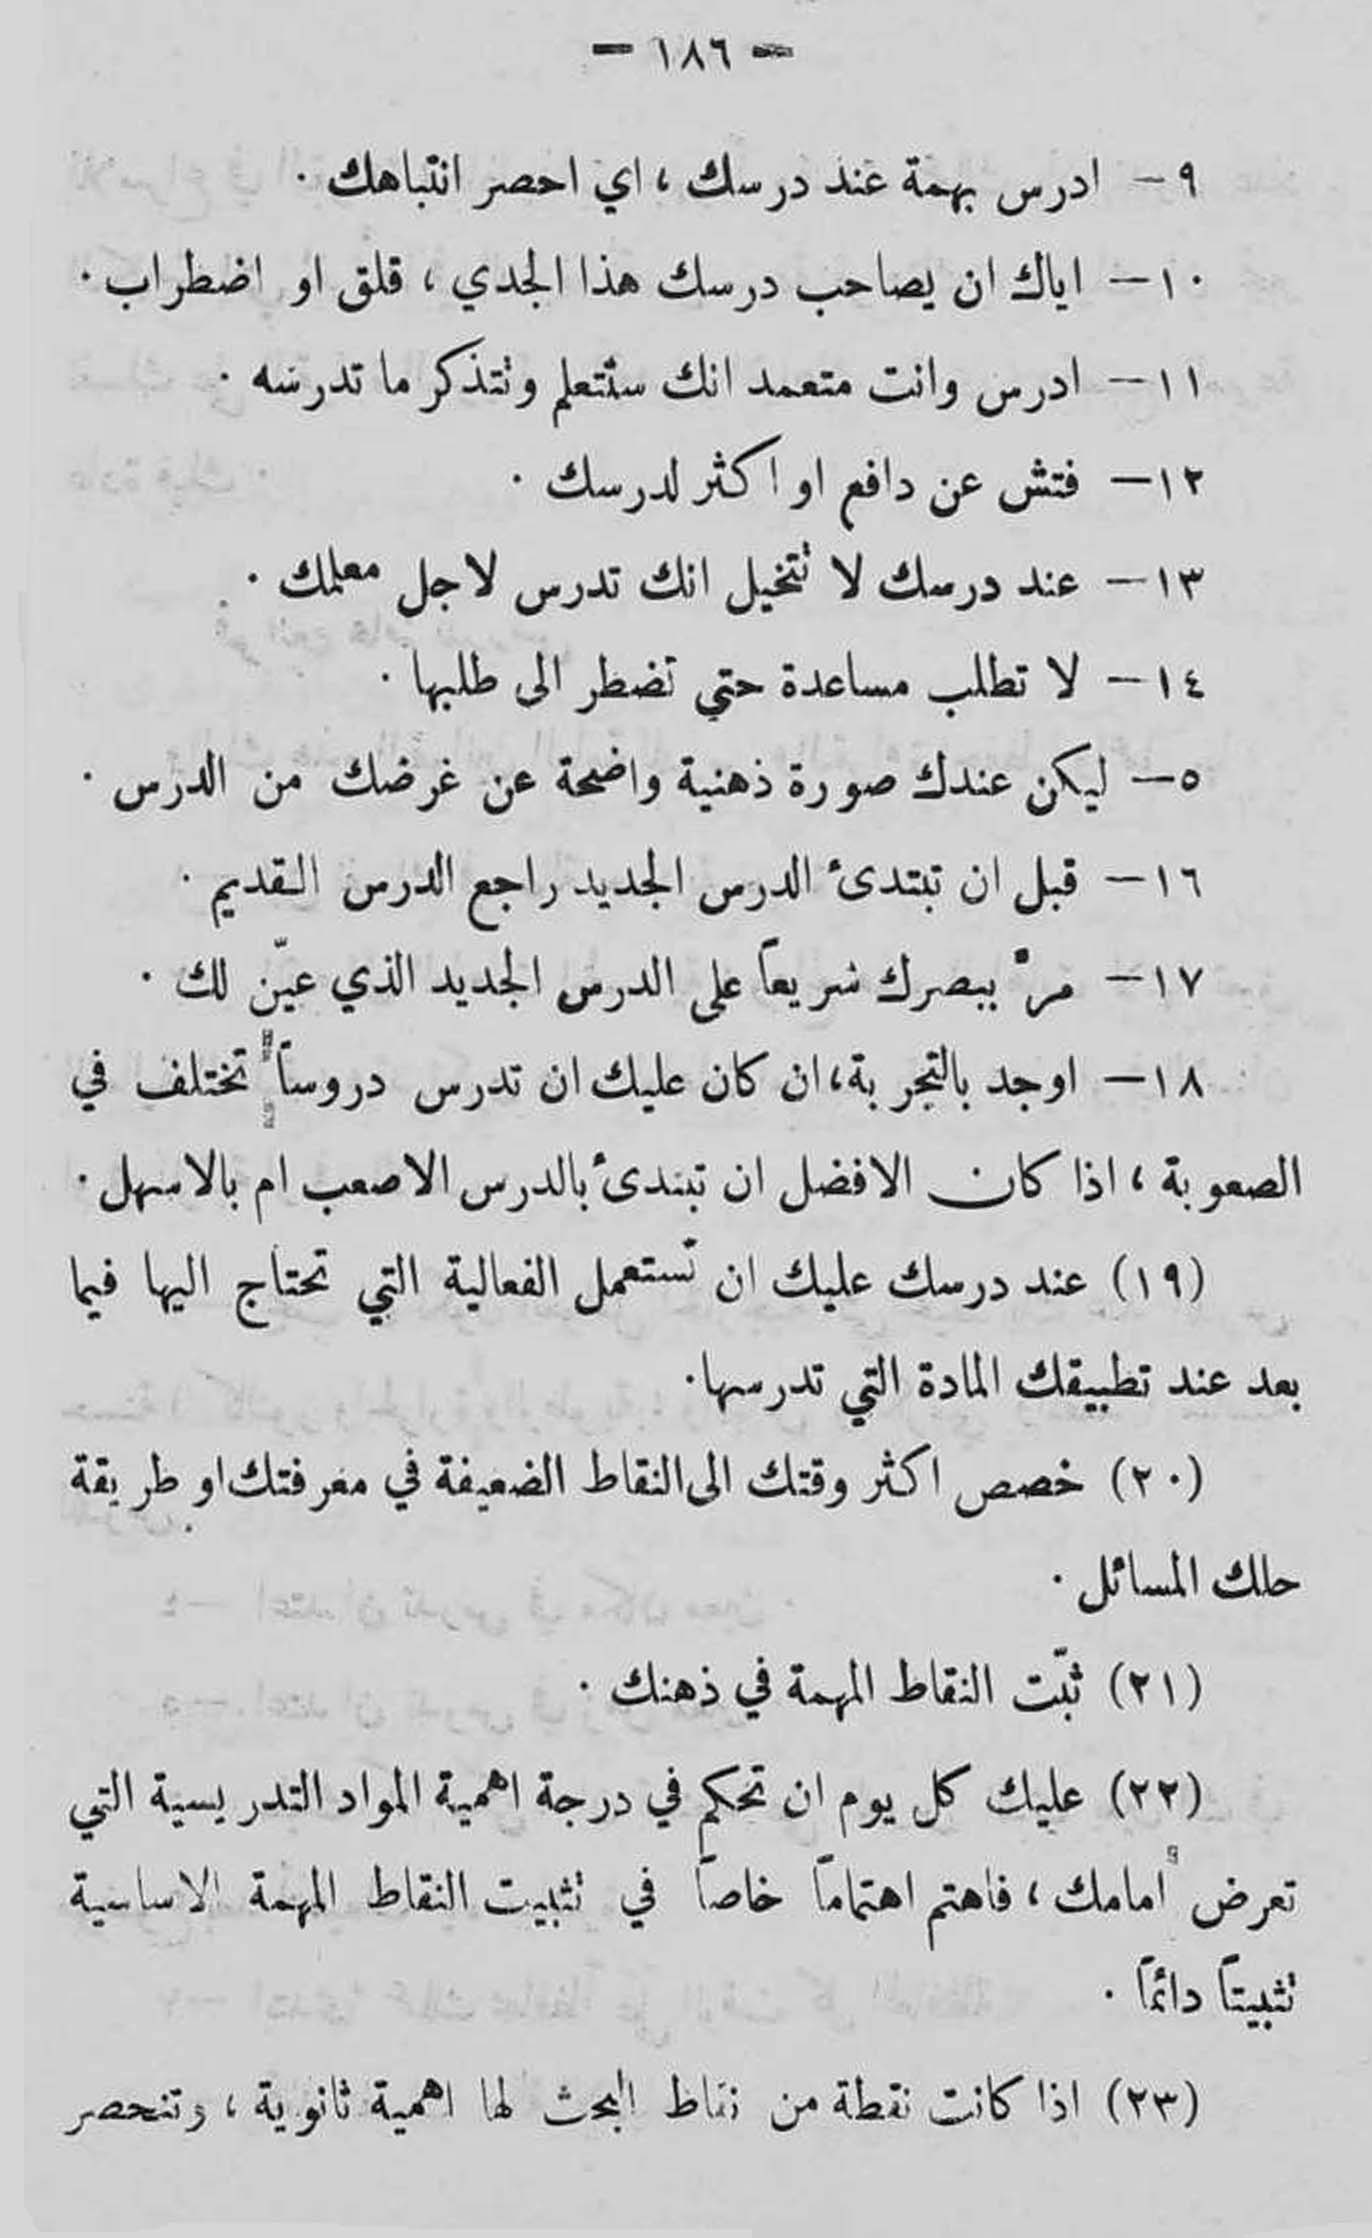 - ١٨٦ -
٩ - ادرس بهمة عند درسك ، اي احصر انتباهك .
١٠ - اياك ان يصاحب درسك هذا الجدي ، قلق او اضطراب .
١١ - ادرس وانت متعمد انك ستتعلم وتتذكر ما تدرسه .
١٢ - فتش عن دافع او اكثر لدرسك .
١٣ - عند درسك لا تتخيل انك تدرس لاجل معلمك .
١٤ - لا تطلب مساعدة حتي تضطر الى طلبها .
٥ - ليكن عندك صورة ذهنية واضحة عن غرضك من الدرس .
١٦ - قبل ان تبتدئ الدرس الجديد راجع الدرس القديم .
١٧ - مرْ ببصرك سريعاً على الدرس الجديد الذي عيّن لك .
١٨ - اوجد بالتجربة ، ان كان عليك ان تدرس دروساً تختلف في
الصعوبة ، اذا كان الافضل ان تبتدئ بالدرس الاصعب ام بالاسهل .
(١٩) عند درسك عليك ان تستعمل الفعالية التي تحتاج اليها فيما
بعد عند تطبيقك المادة التي تدرسها .
(٢٠) خصص اكثر وقتك الى النقاط الضعيفة في معرفتك او طريقة
حلك المسائل .
(٢١) ثبّت النقاط المهمة في ذهنك .
(٢٢) عليك كل يوم ان تحكم في درجة اهمية المواد التدريسية التي
تعرض امامك ، فاهتم اهتماماً خاصاً في تثبيت النقاط المهمة الاساسية
تثبيتاً دائماً .
(٢٣) اذا كانت نقطة من نقاط البحث لها اهمية ثانوية ، وتنحصر